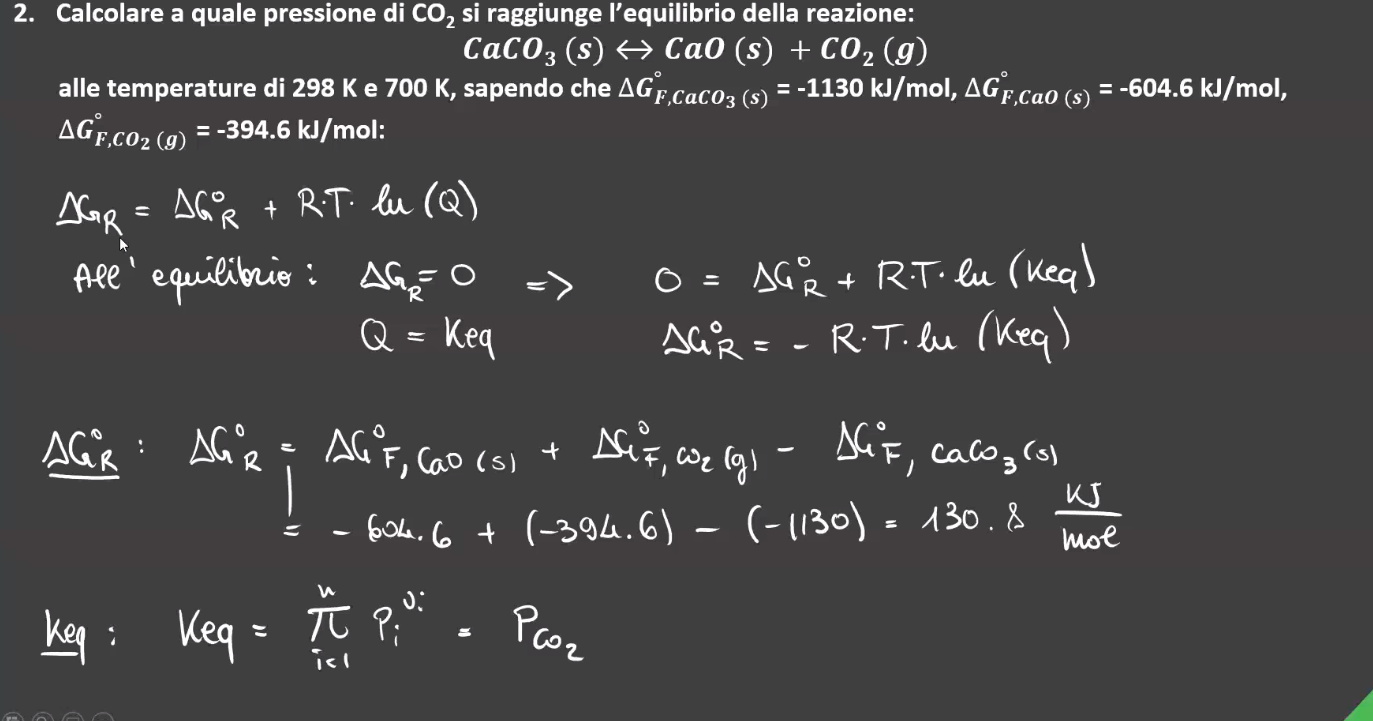 2. Calcolare a quale pressione di CO₂ si raggiunge l'equilibrio della reazione:
CaCO₃ (s) ↔ CaO (s) + CO₂ (g)
alle temperature di 298 K e 700 K, sapendo che ΔG°F,CaCO₃ (s) = -1130 kJ/mol, ΔG°F,CaO (s) = -604.6 kJ/mol,
ΔG°F,CO₂ (g) = -394.6 kJ/mol:
ΔG_R = ΔG°_R + R·T· ln (Q)
All' equilibrio : ΔG_R = 0 => 0 = ΔG°_R + R·T· ln (Keq)
Q = Keq ΔG°_R = - R·T· ln (Keq)
ΔG°_R : ΔG°_R = ΔG°F, CaO (s) + ΔG°F, CO₂ (g) - ΔG°F, CaCO₃ (s)
= - 604.6 + (-394.6) - (-1130) = 130.8 KJ/mol
Keq : Keq = π_{i=1}^{n} P_i^{νi} = P_CO₂